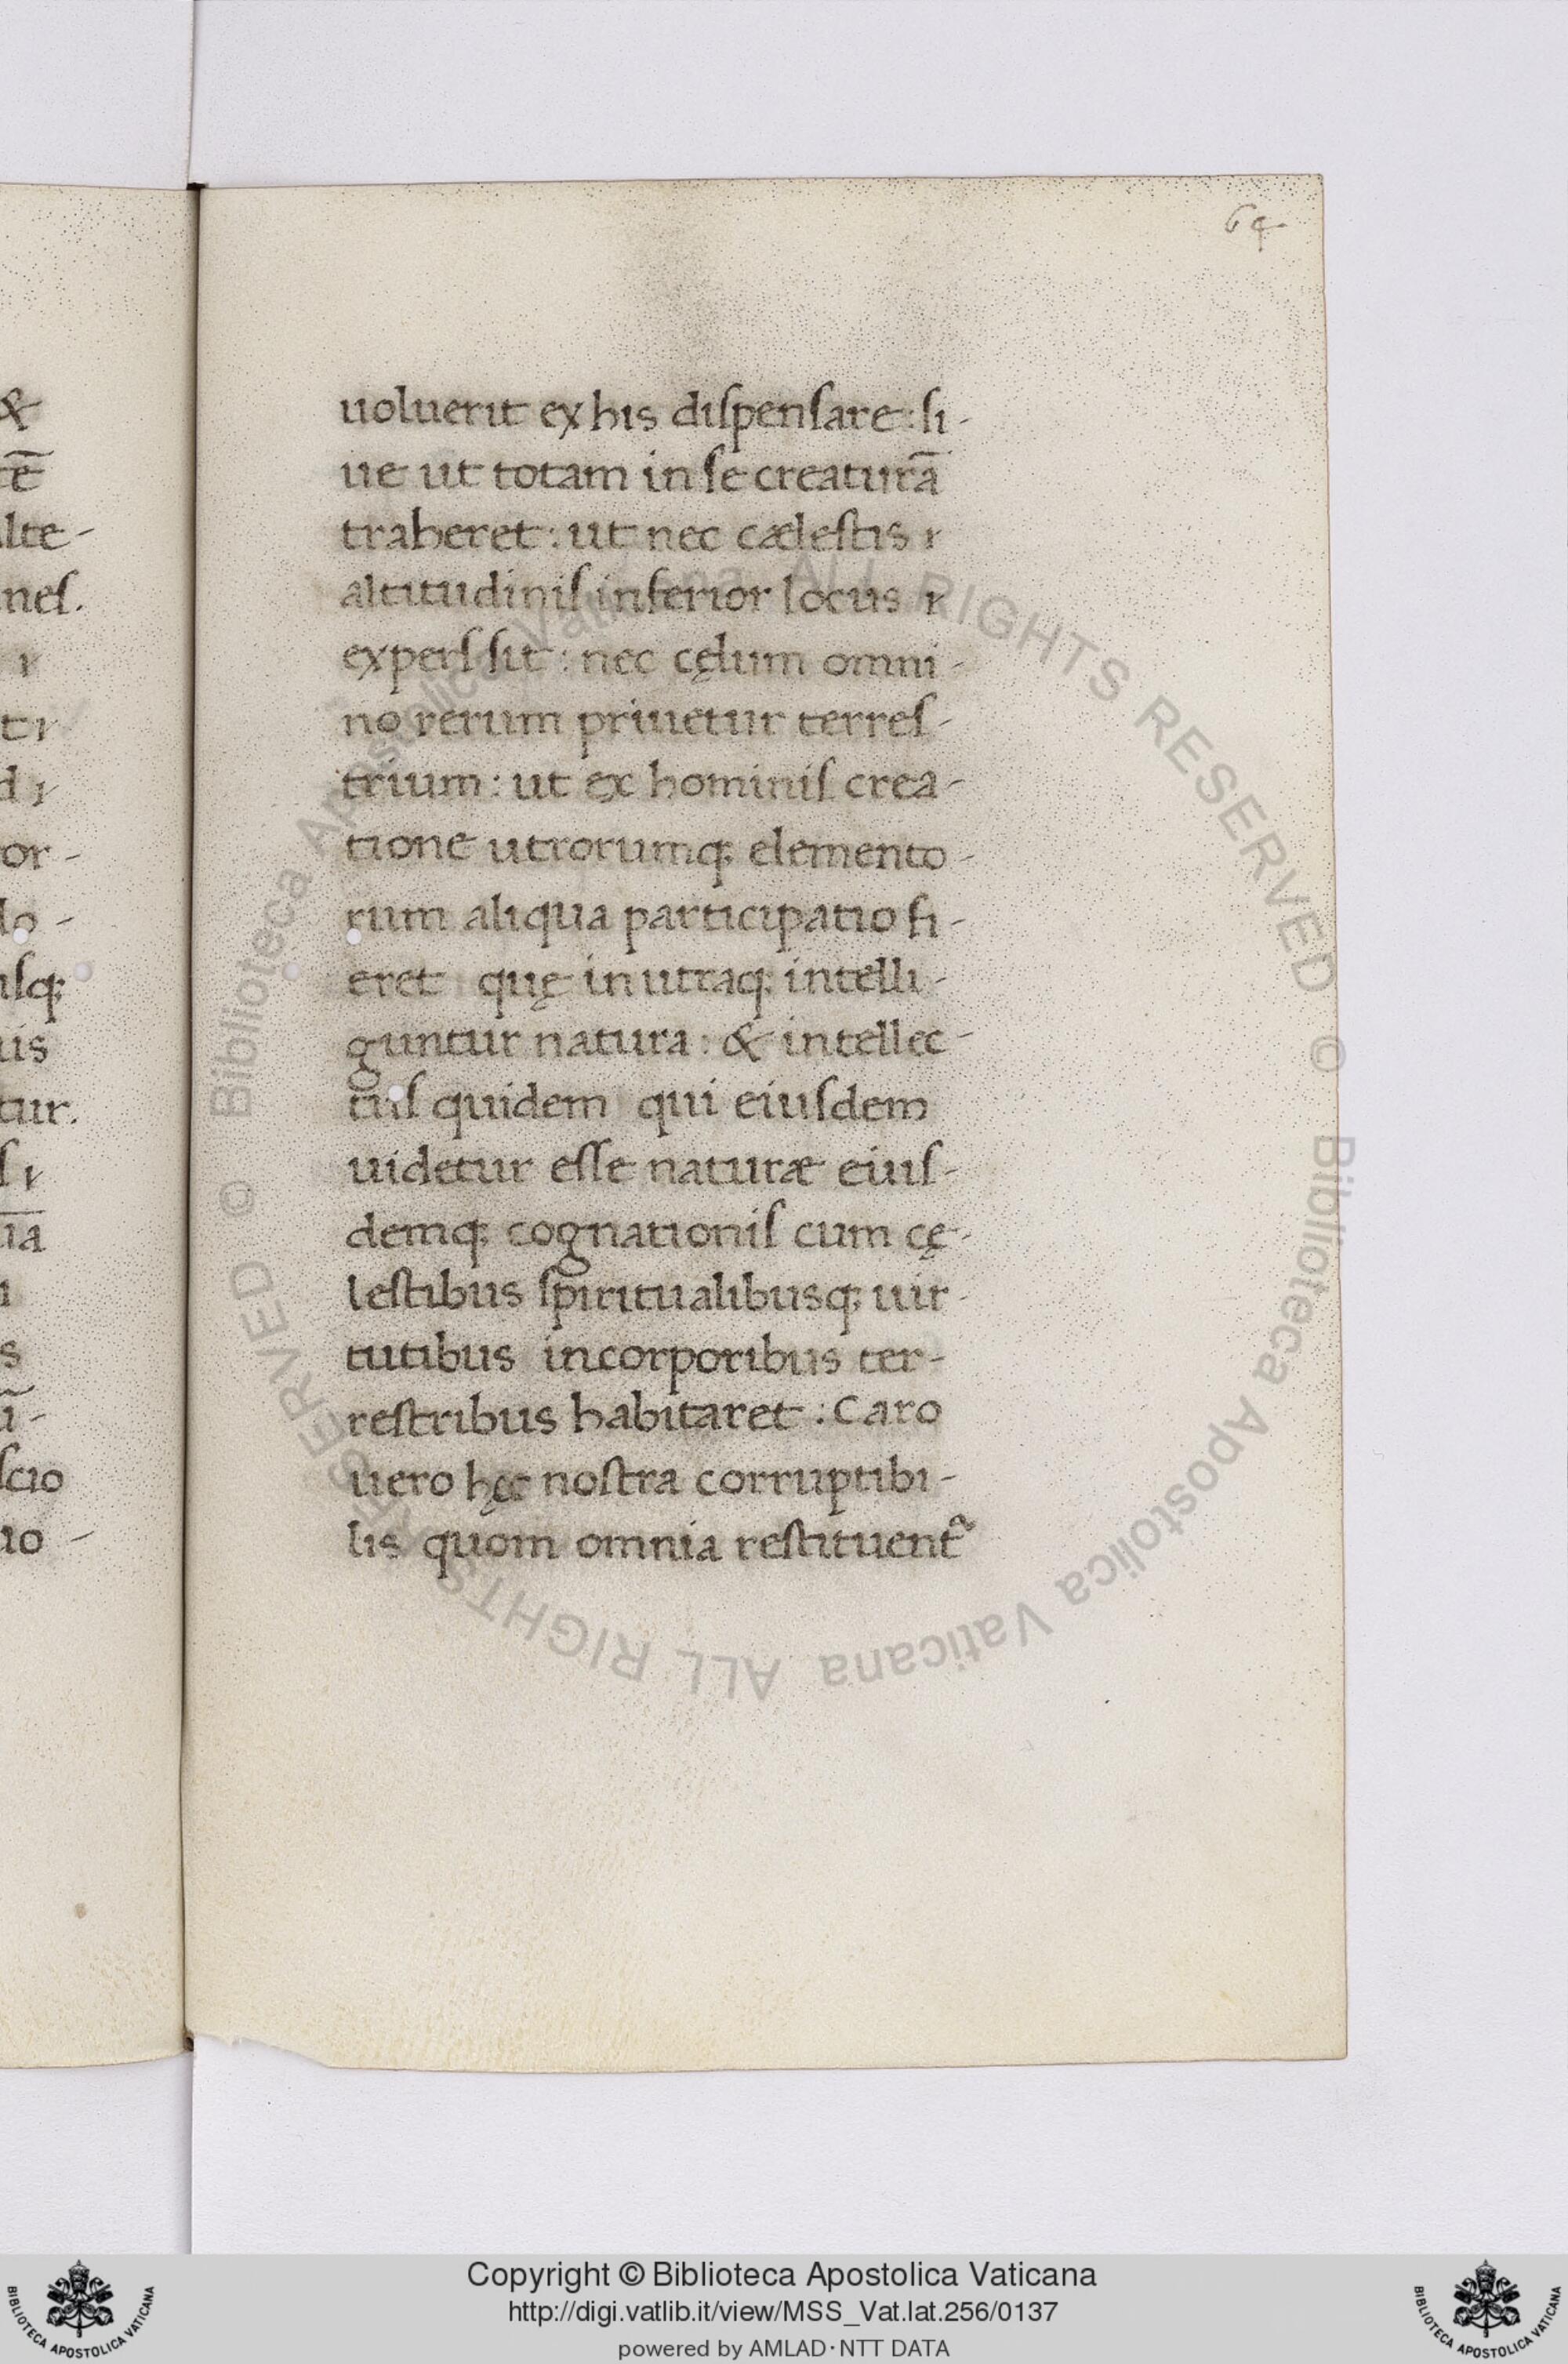 64
uoluerit ex his diſpenſare: ſi-
ue ut totam in ſe creaturā
traheret: ut nec cæleſtis
altitudiniſ inferior locus
experſ ſit: nec cęlum omni-
no rerum priuetur terreſ-
trium: ut ex hominiſ crea-
tione utrorumq; elemento-
rum aliqua participatio fi-
eret quę in utraq; intelli-
guntur natura: & intellec-
tuſ quidem qui eiuſdem
uidetur eſſe naturæ eiuſ-
demq; cognationiſ cum cę-
leſtibus ſpiritualibusq; uir-
tutibus incorporibus ter-
reſtribus habitaret: Caro
uero hęc noſtra corruptibi-
lis quom omnia reſtituent᷑
&
tē
lte-
neſ.
or-
lo-
ſq;
uis
tur.
uā
ſcio
uo-
© Biblioteca Apostolica Vaticana ALL RIGHTS RESERVED © Biblioteca Apostolica Vaticana ALL RIGHTS RESERVED
Copyright © Biblioteca Apostolica Vaticana
http://digi.vatlib.it/view/MSS_Vat.lat.256/0137
powered by AMLAD·NTT DATA
BIBLIOTECA APOSTOLICA VATICANA
BIBLIOTECA APOSTOLICA VATICANA